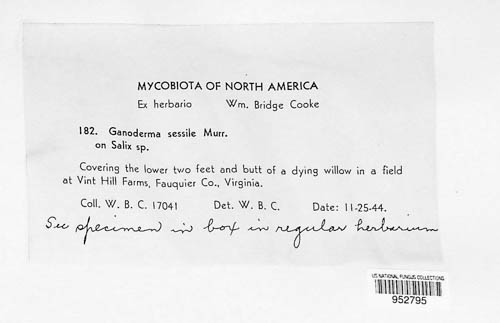 MYCOBIOTA OF NORTH AMERICA
Ex herbario Wm. Bridge Cooke
182. Ganoderma sessile Murr.
on Salix sp.
Covering the lower two feet and butt of a dying willow in a field
at Vint Hill Farms, Fauquier Co., Virginia.
Coll. W. B. C. 17041 Det. W. B. C. Date: 11-25-44.
See specimen in box in regular herbarium
US NATIONAL FUNGUS COLLECTIONS
952795